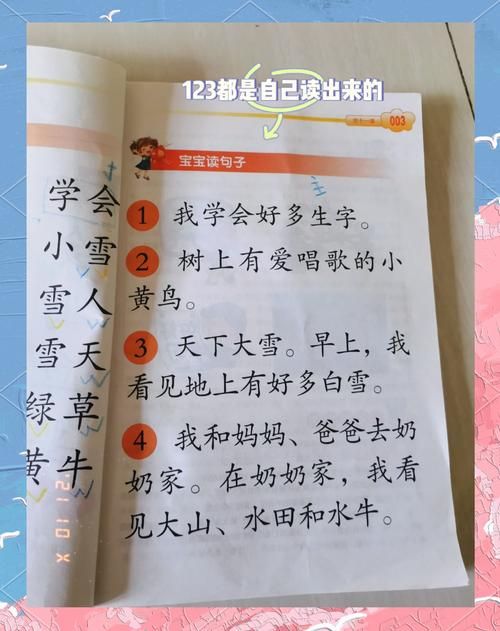 123都是自己读出来的
第十一课 003
宝宝读句子
主
1 我学会好多生字。
2 树上有爱唱歌的小
黄鸟。
3 天下大雪。早上，我
看见地上有好多白雪。
4 我和妈妈、爸爸去奶
奶家。在奶奶家，我看
见大山、水田和水牛。
学会
小雪
雪人
雪天
绿草
黄牛
21 10 X